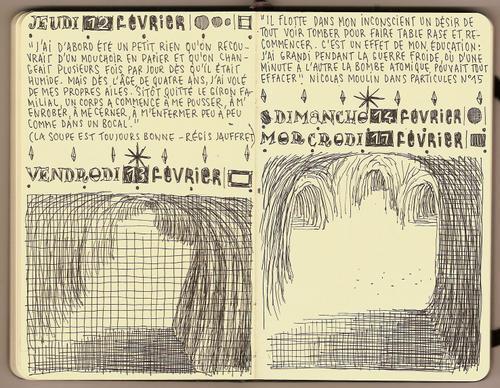 JEUDI 12 FÉVRIER
"J'AI D'ABORD ÉTÉ UN PETIT RIEN QU'ON RECOU-
VRAIT D'UN MOUCHOIR EN PAPIER ET QU'ON CHAN-
GEAIT PLUSIEURS FOIS PAR JOUR DÈS QU'IL ÉTAIT
HUMIDE. MAIS DÈS L'ÂGE DE QUATRE ANS, J'AI VOLÉ
DE MES PROPRES AILES. SITÔT QUITTÉ LE GIRON FA-
MILIAL, UN CORPS A COMMENCÉ À ME POUSSER, À M'
ENROBER, À ME CERNER, À M'ENFERMER PEU À PEU
COMME DANS UN BOCAL."
(LA SOUPE EST TOUJOURS BONNE - RÉGIS JAUFFRET)
VENDRODI 13 FÉVRIER
"IL FLOTTE DANS MON INCONSCIENT UN DÉSIR DE
TOUT VOIR TOMBER POUR FAIRE TABLE RASE ET RE-
COMMENCER. C'EST UN EFFET DE MON ÉDUCATION:
J'AI GRANDI PENDANT LA GUERRE FROIDE, OÙ D'UNE
MINUTE À L'AUTRE LA BOMBE ATOMIQUE POUVAIT TOUT
EFFACER" NICOLAS MOULIN DANS PARTICULES N°15
S DIMANCHO 14 FÉVRIER
MORCRODI 17 FÉVRIER